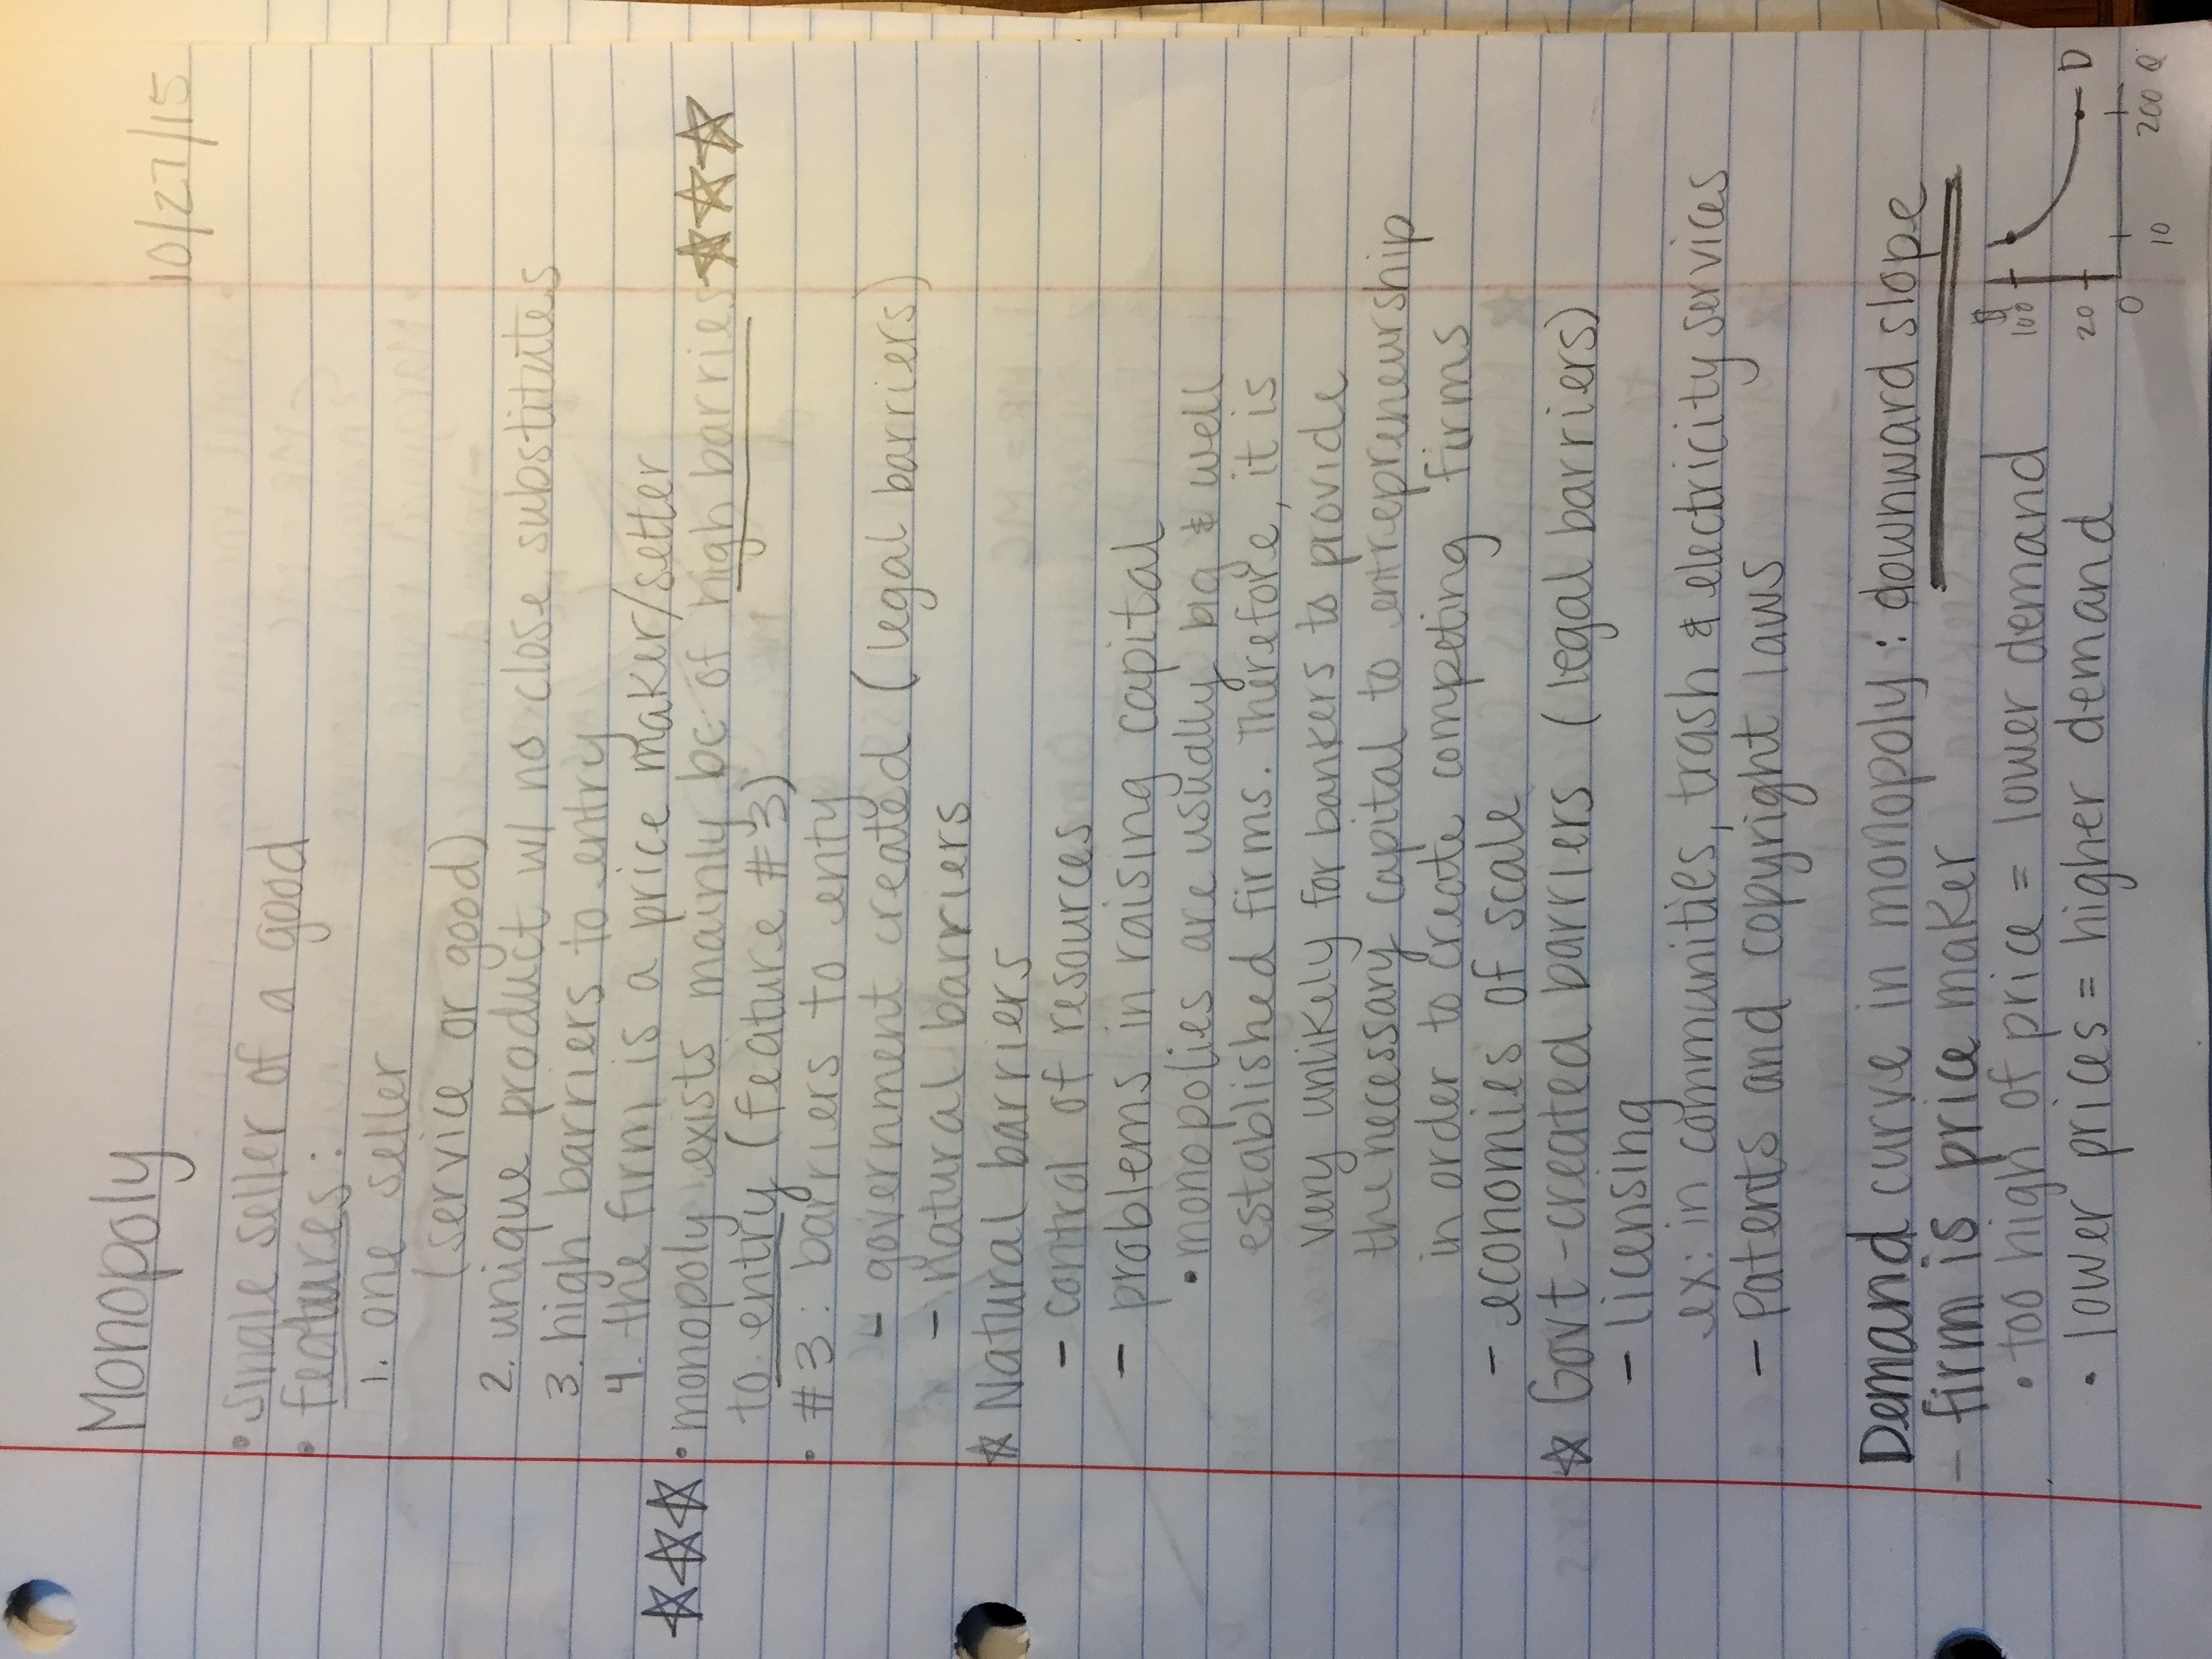 Monopoly
10/27/15
• single seller of a good
• features:
1. one seller
(service or good)
2. unique product w/ no close substitutes
3. high barriers to entry
4. the firm is a price maker/setter
☆☆☆ • monopoly exists mainly bc of high barries ☆☆☆
to entry (feature #3)
• #3: barriers to enty
- government created (legal barriers)
- natural barriers
☆ Natural barriers
- control of resources
- problems in raising capital
• monopolies are usually big & well
established firms. Therefore, it is
very unlikely for bankers to provide
the necessary capital to entrepreneurship
in order to create competing firms
- economies of scale
☆ Govt-created barriers (legal barriers)
- licensing
ex: in communities, trash & electricity services
- Patents and copyright laws
Demand curve in monopoly: downward slope
- firm is price maker
• too high of price = lower demand
• lower prices = higher demand
$
100
20
0
10
200
Q
D